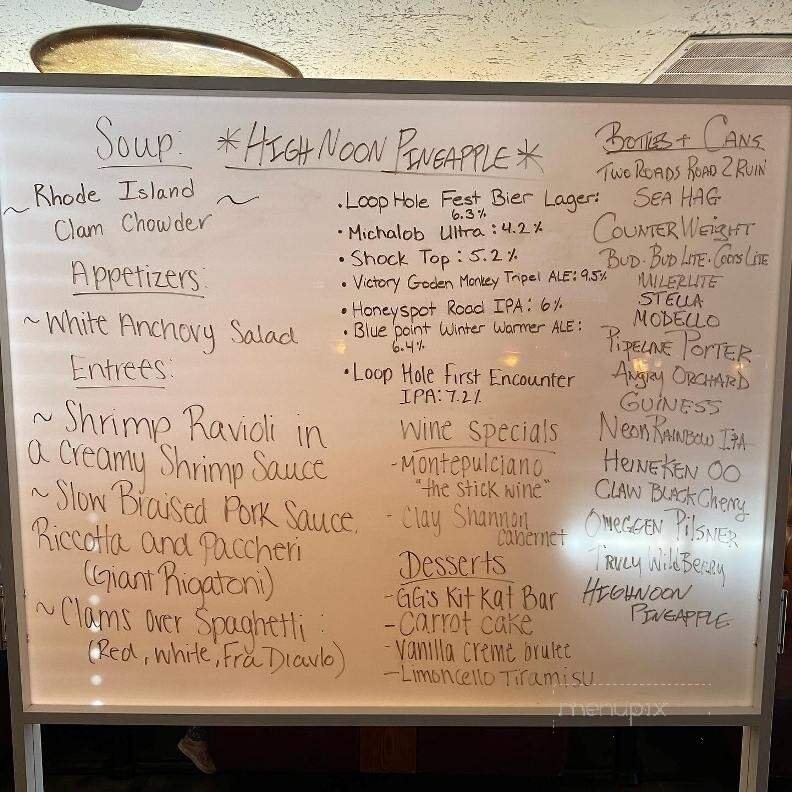 Soup:
~ Rhode Island ~
Clam Chowder
Appetizers:
~ White Anchovy Salad
Entrees:
~ Shrimp Ravioli in
a Creamy Shrimp Sauce
~ Slow Braised Pork Sauce,
Riccotta and Paccheri
(Giant Rigatoni)
~ Clams over Spaghetti:
(Red, White, Fra Diavlo)
*HIGH NOON PINEAPPLE*
• Loop Hole Fest Bier Lager:
6.3%
• Michalob Ultra: 4.2%
• Shock Top: 5.2%
• Victory Goden Monkey Tripel ALE: 9.5%
• Honeyspot Road IPA: 6%
• Blue point Winter Warmer ALE:
6.4%
• Loop Hole First Encounter
IPA: 7.2%
Wine Specials
- Montepulciano
"the stick wine"
- Clay Shannon
cabernet
Desserts
- GG's Kit Kat Bar
- Carrot cake
- Vanilla creme brulee
- Limoncello Tiramisu
BOTTLES + CANS
TWO ROADS ROAD 2 RUIN
SEA HAG
COUNTER WEIGHT
BUD. BUD LITE. COORS LITE
MILLERLITE
STELLA
MODELLO
PIPELINE PORTER
ANGRY ORCHARD
GUINESS
NEON RAINBOW IPA
HEINEKEN OO
CLAW BLACK Cherry
OMEGGEN PILSNER
TRULY WILD BERRY
HIGHNOON
PINEAPPLE
menupix